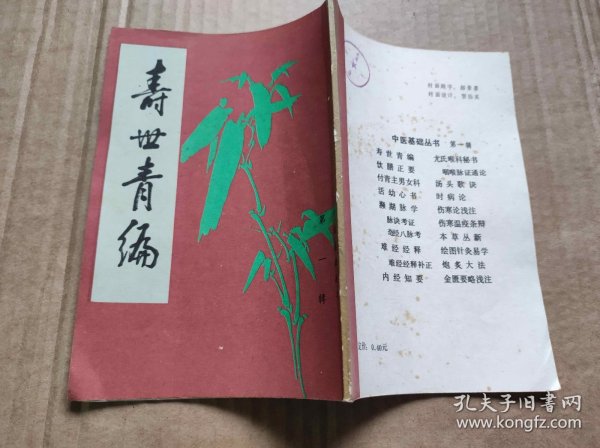 寿世青编
第一辑
封面题字:
封面设计:
中医基础丛书 第一辑
寿世青编 尤氏喉科秘书
饮膳正要 咽喉脉证通论
付青主男女科 汤头歌诀
活幼心书 时病论
濒湖脉学 伤寒论浅注
脉诀考证 伤寒温疫条辩
奇经八脉考 本草丛新
难经经释 绘图针灸易学
难经经释补正 炮炙大法
内经知要 金匮要略浅注
定价:0.40元
孔夫子旧书网
www.kongfz.com